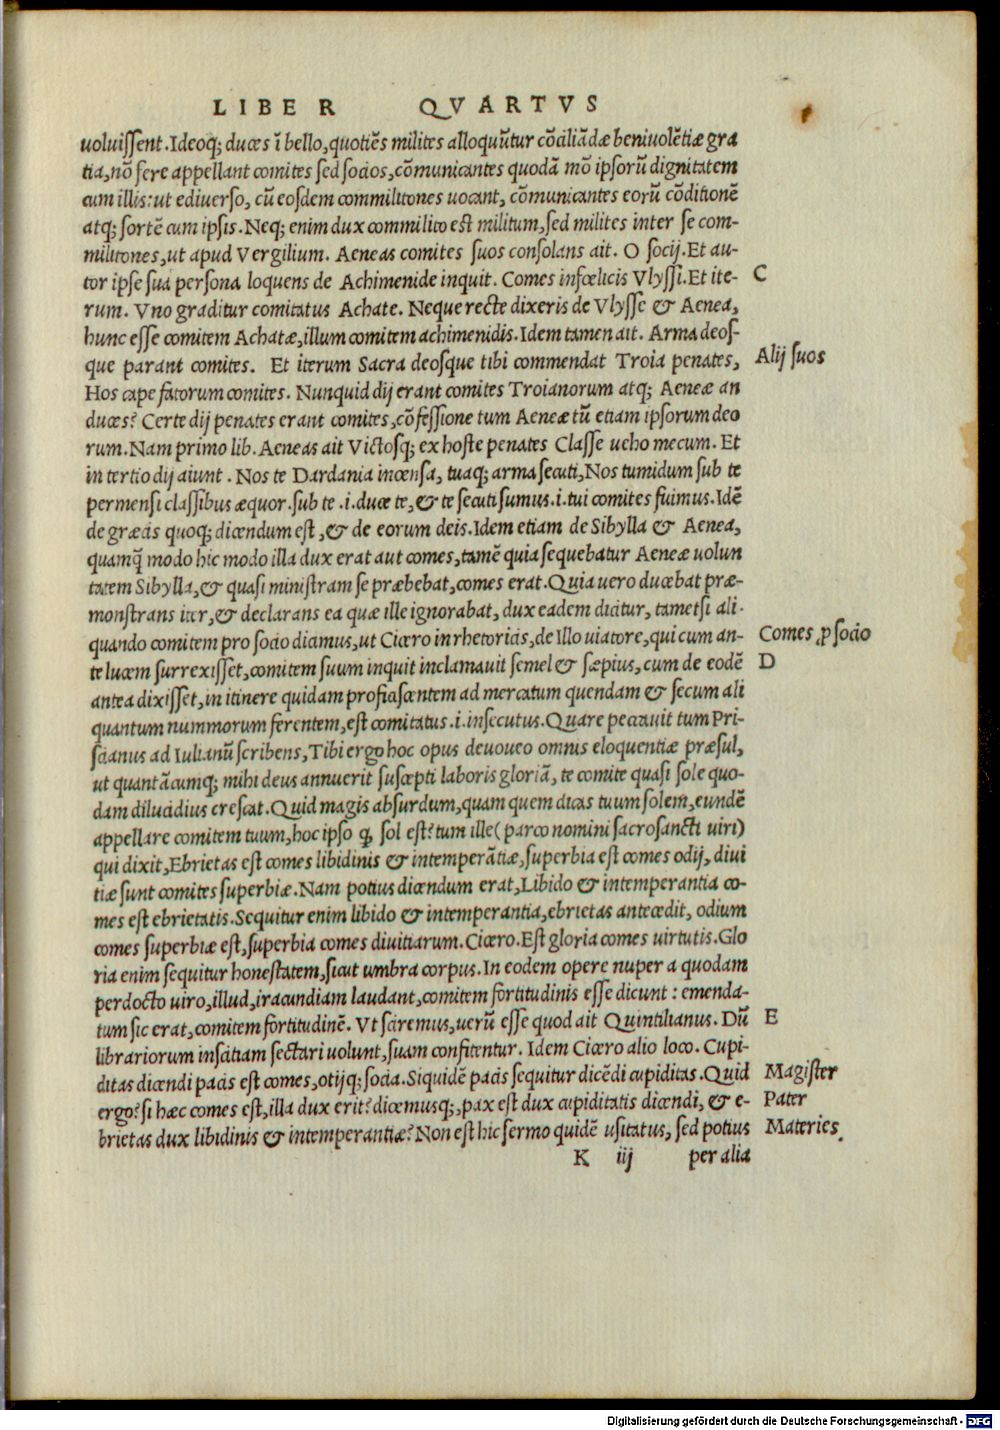 LIBER QVARTVS
uoluissent. Ideoq; duces ī bello, quotiēs milites alloquūtur cōciliādæ beniuolētiæ gra
tia, nō fere appellant comites sed socios, cōmunicantes quodā mō ipsorū dignitatem
cum illis: ut ediuerso, cū eosdem commilitones uocant, cōmunicantes eorū cōditionē
atq; sortē cum ipsis. Neq; enim dux commilito est militum, sed milites inter se com-
militones, ut apud Vergilium. Aeneas comites suos consolans ait. O socij. Et au-
tor ipse sua persona loquens de Achimenide inquit. Comes infœlicis Vlyssi. Et ite-
C
rum. Vno graditur comitatus Achate. Neque recte dixeris de Vlysse & Aenea,
hunc esse comitem Achatæ, illum comitem achimenidis. Idem tamen ait. Arma deos-
que parant comites. Et iterum Sacra deosque tibi commendat Troia penates,
Alij suos
Hos cape fatorum comites. Nunquid dij erant comites Troianorum atq; Aeneæ an
duces? Certe dij penates erant comites, cōfessione tum Aeneæ tū etiam ipsorum deo
rum. Nam primo lib. Aeneas ait Victosq; ex hoste penates Classe ueho mecum. Et
in tertio dij aiunt. Nos te Dardania incensa, tuaq; arma secuti, Nos tumidum sub te
permensi classibus æquor. sub te .i. duce te, & te secuti sumus .i. tui comites fuimus. Idē
de græcis quoq; dicendum est, & de eorum deis. Idem etiam de Sibylla & Aenea,
quamq̄ modo hic modo illa dux erat aut comes, tamē quia sequebatur Aeneæ uolun
tatem Sibylla, & quasi ministram se præbebat, comes erat. Quia uero ducebat præ-
monstrans iter, & declarans ea quæ ille ignorabat, dux eadem dicitur, tametsi ali-
quando comitem pro socio dicimus, ut Cicero in rhetoricis, de Illo uiatore, qui cum an-
Comes ꝓ socio
te lucem surrexisset, comitem suum inquit inclamauit semel & sæpius, cum de eodē
D
antea dixisset, in itinere quidam proficiscentem ad mercatum quendam & secum ali
quantum nummorum ferentem, est comitatus .i. insecutus. Quare peccauit tum Pri-
scianus ad Iulianū scribens, Tibi ergo hoc opus deuoueo omnis eloquentiæ præsul,
ut quantācumq; mihi deus annuerit suscepti laboris gloriā, te comite quasi sole quo-
dam dilucidius crescat. Quid magis absurdum, quam quem dicas tuum solem, eundē
appellare comitem tuum, hoc ipso ꝙ sol est? tum ille (parco nomini sacrosancti uiri)
qui dixit, Ebrietas est comes libidinis & intemperātiæ, superbia est comes odij, diui
tiæ sunt comites superbiæ. Nam potius dicendum erat, Libido & intemperantia co-
mes est ebrietatis. Sequitur enim libido & intemperantia, ebrietas antecedit, odium
comes superbiæ est, superbia comes diuitiarum. Cicero. Est gloria comes uirtutis. Glo
ria enim sequitur honestatem, sicut umbra corpus. In eodem opere nuper a quodam
perdocto uiro, illud, iracundiam laudant, comitem fortitudinis esse dicunt: emenda-
tum sic erat, comitem fortitudinē. Vt sciremus, uerū esse quod ait Quintilianus. Dū
E
librariorum inscitiam sectari uolunt, suam confitentur. Idem Cicero alio loco. Cupi-
ditas dicendi pacis est comes, otijq; socia. Siquidē pacis sequitur dicēdi cupiditas. Quid
Magister
ergo? si hæc comes est, illa dux erit? dicemusq;, pax est dux cupiditatis dicendi, & e-
Pater
brietas dux libidinis & intemperantiæ? Non est hic sermo quidē usitatus, sed potius
Materies
K iij per alia
Digitalisierung gefördert durch die Deutsche Forschungsgemeinschaft - DFG